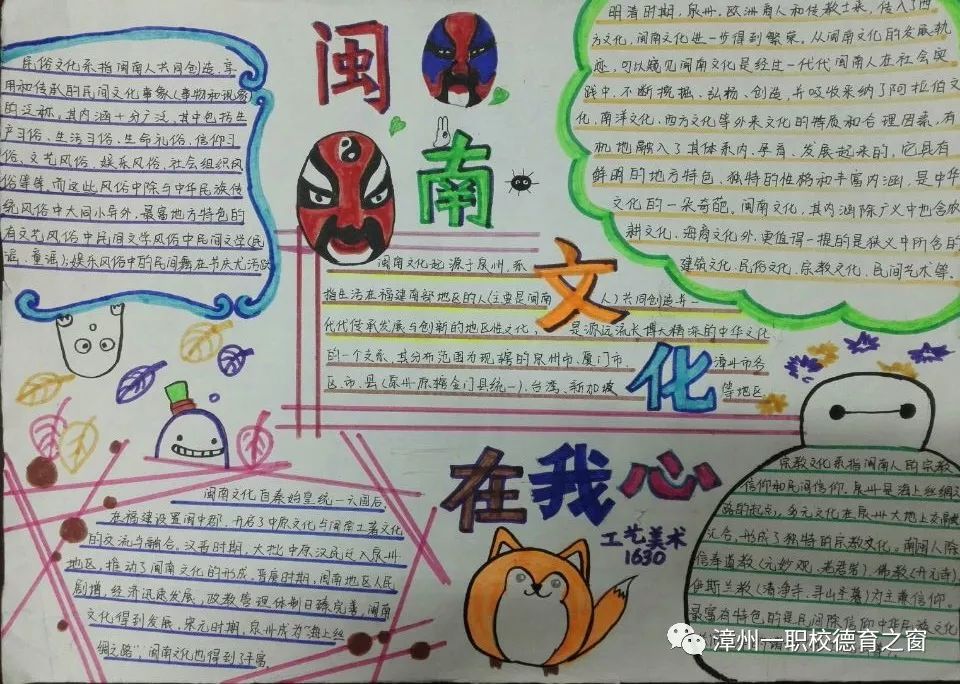 闽
南
文
化
在我心
工艺美术
1630
民俗文化系指闽南人共同创造、享
用和传承的民间文化事象(事物和现象)
的泛称。其内涵十分广泛,其中包括生
产习俗、生活习俗、生命礼俗、信仰习
俗、文艺风俗、娱乐风俗、社会组织风
俗等等,而这此风俗中除与中华民族传
统风俗中大同小异外,最富地方特色的
有文艺风俗中民间文学风俗中民间文学(民
谣、童谣);娱乐风俗中的民间舞在节庆尤活跃
明清时期,泉州,欧洲商人和传教士来,传入了西
方文化,闽南文化进一步得到繁荣。从闽南文化的发展轨
迹,可以窥见闽南文化是经过一代代闽南人在社会实
践中,不断挖掘、弘扬、创造,并吸收采纳了阿拉伯文
化,南洋文化、西方文化等外来文化的特质和合理因素,有
机地融入了其体系内,孕育、发展起来的,它具有
鲜明的地方特色、独特的性格和丰富内涵,是中华
文化的一朵奇葩。闽南文化,其内涵除广义中也含农
耕文化、海商文化外,更值得一提的是狭义中所含的
建筑文化、民俗文化、宗教文化、民间艺术等。
闽南文化起源于泉州,系
指生活在福建南部地区的人(主要是闽南人)共同创造并一
代代传承发展与创新的地区性文化,是源远流长博大精深的中华文化
的一个支系,其分布范围为现辖的泉州市、厦门市、漳州市各
区、市、县(泉州原辖金门县统一)、台湾、新加坡等地区。
闽南文化自秦始皇统一六国后,
在福建设置闽中郡,开启了中原文化与闽南土著文化
的交流与融合。汉晋时期,大批中原汉民迁入泉州
地区,推动了闽南文化的形成。晋唐时期,闽南地区人民
剧增,经济迅速发展,政教管理体制日臻完善,闽南
文化得到发展。宋元时期,泉州成为“海上丝
绸之路”,闽南文化也得到了丰富。
宗教文化系指闽南人的宗教
信仰和民间信仰。泉州是海上丝绸之
路的起点,多元文化在泉州大地上交融
汇合,形成了独特的宗教文化。闽南人除
信奉道教(元妙观、老君岩)、佛教(开元寺)
伊斯兰教(清净寺、寻山圣墓)为主兼信仰。
最富有特色的是民间除信仰中华民族文化
漳州一职校德育之窗